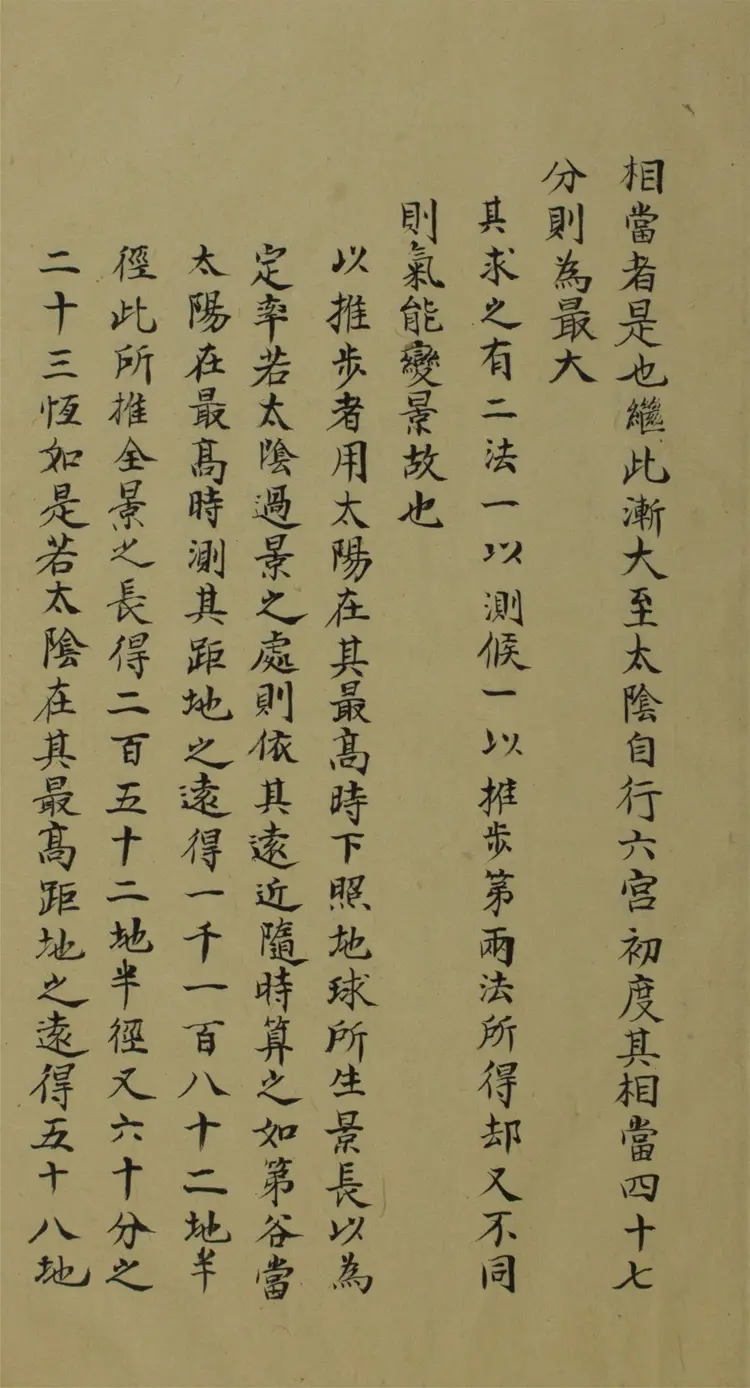 相當者是也繼此漸大至太陰自行六宮初度其相當四十七
分則為最大
其求之有二法一以測候一以推步第兩法所得却又不同
則氣能變景故也
以推步者用太陽在其最高時下照地球所生景長以為
定率若太陰過景之處則依其遠近隨時算之如第谷當
太陽在最高時測其距地之遠得一千一百八十二地半
徑此所推全景之長得二百五十二地半徑又六十分之
二十三恆如是若太陰在其最高距地之遠得五十八地